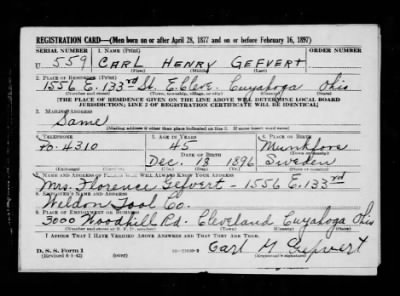 REGISTRATION CARD—(Men born on or after April 28, 1877 and on or before February 16, 1897)
SERIAL NUMBER 1. NAME (Print) ORDER NUMBER
U 559 CARL HENRY GEFVERT
(First) (Middle) (Last)
2. PLACE OF RESIDENCE (Print)
1556 E. 133rd St. E. Cleve. Cuyahoga Ohio
(Number and street) (Town, township, village, or city) (County) (State)
[THE PLACE OF RESIDENCE GIVEN ON THE LINE ABOVE WILL DETERMINE LOCAL BOARD
JURISDICTION; LINE 2 OF REGISTRATION CERTIFICATE WILL BE IDENTICAL]
3. MAILING ADDRESS
Same
[Mailing address if other than place indicated on line 2. If same insert word same]
4. TELEPHONE 5. AGE IN YEARS 6. PLACE OF BIRTH
PO. 4310 45 Munkfors
DATE OF BIRTH
Dec. 13 1896 Sweden
7. NAME AND ADDRESS OF PERSON WHO WILL ALWAYS KNOW YOUR ADDRESS
Mrs. Florence Gefvert - 1556 E. 133rd
8. EMPLOYER'S NAME AND ADDRESS
Weldon Tool Co.
9. PLACE OF EMPLOYMENT OR BUSINESS
3000 Woodhill Rd. Cleveland Cuyahoga Ohio
I AFFIRM THAT I HAVE VERIFIED ABOVE ANSWERS AND THAT THEY ARE TRUE.
D. S. S. Form 1
(Revised 4-1-42) (over)
Carl H. Gefvert
(Registrant's signature)